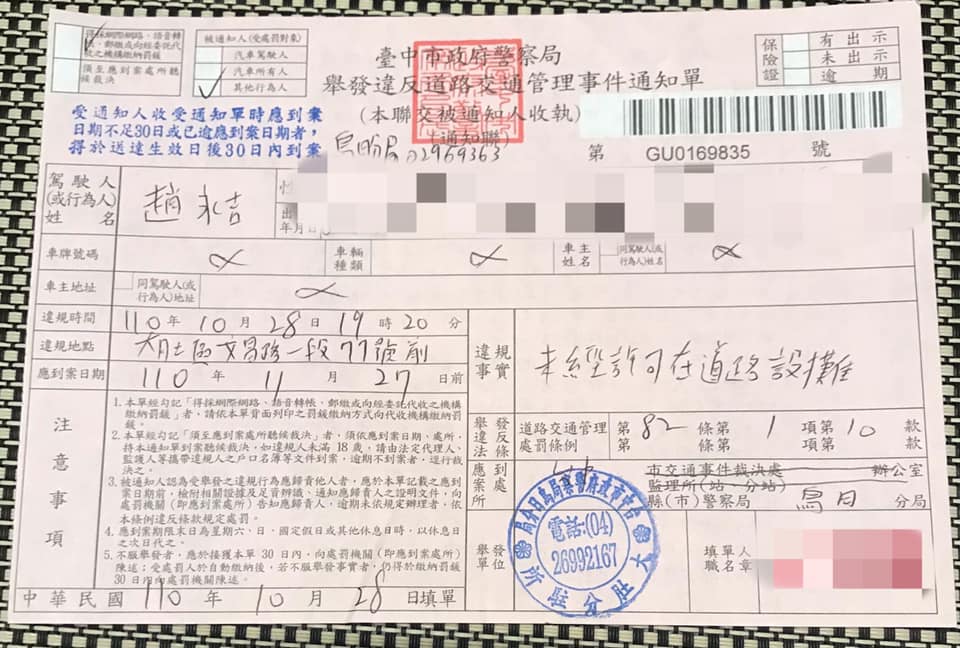 得採網際網路、語音轉
帳、郵繳或向經委託代
收之機構繳納罰鍰
須至應到案處所聽
候裁決
被通知人(受處罰對象)
汽車駕駛人
汽車所有人
其他行為人
臺中市政府警察局
舉發違反道路交通管理事件通知單
(本聯交被通知人收執)
(通知聯)
保險證
有出示
未出示
逾期
受通知人收受通知單時應到案
日期不足30日或已逾應到案日期者,
得於送達生效日後30日內到案
烏 02959363
第 GU0169835 號
駕駛人
(或行為人)
姓名
趙永吉
年月日
車牌號碼
車輛種類
車主姓名
同駕駛人(或行為人)姓名
車主地址
同駕駛人(或行為人)地址
違規時間 110年10月28日19時20分
違規地點 大肚區文昌路一段77號前
應到案日期 110年11月27日前
違規事實 未經許可在道路設攤
注意事項
1.本單經勾記「得採網際網路、語音轉帳、郵繳或向經委託代收之機構
繳納罰鍰」者,請依本單背面列印之罰鍰繳納方式向代收機構繳納罰
鍰。
2.本單經勾記「須至應到案處所聽候裁決」者,須依應到案日期、處所,
持本通知單到案聽候裁決,如違規人未滿18歲,請由法定代理人、
監護人等攜帶違規人之戶口名簿等文件到案,逾期不到案者,逕行裁
決之。
3.被通知人認為受舉發之違規行為應歸責他人者,應於本單記載之應到
案日期前,檢附相關證據及足資辨識、通知應歸責人之證明文件,向
處罰機關(即應到案處所)告知應歸責人,逾期未依規定辦理者,依
本條例違反條款規定處罰。
4.應到案期限末日為星期六、日、國定假日或其他休息日時,以休息日
之次日代之。
5.不服舉發者,應於接獲本單30日內,向處罰機關(即應到案處所)
陳述;受處罰人於自動繳納後,若不服舉發事實者,仍得於繳納罰鍰
30日內向處罰機關陳述。
舉發違反法條
道路交通管理處罰條例
第82條第1項第10款
第 條第 項第 款
應到案處所
市交通事件裁決處 辦公室
監理所(站、分站)
縣(市)警察局 烏日 分局
舉發單位
臺中市政府警察局烏日分局
電話:(04)
26992167
大肚分駐所
填單人職名章
中華民國110年10月28日填單